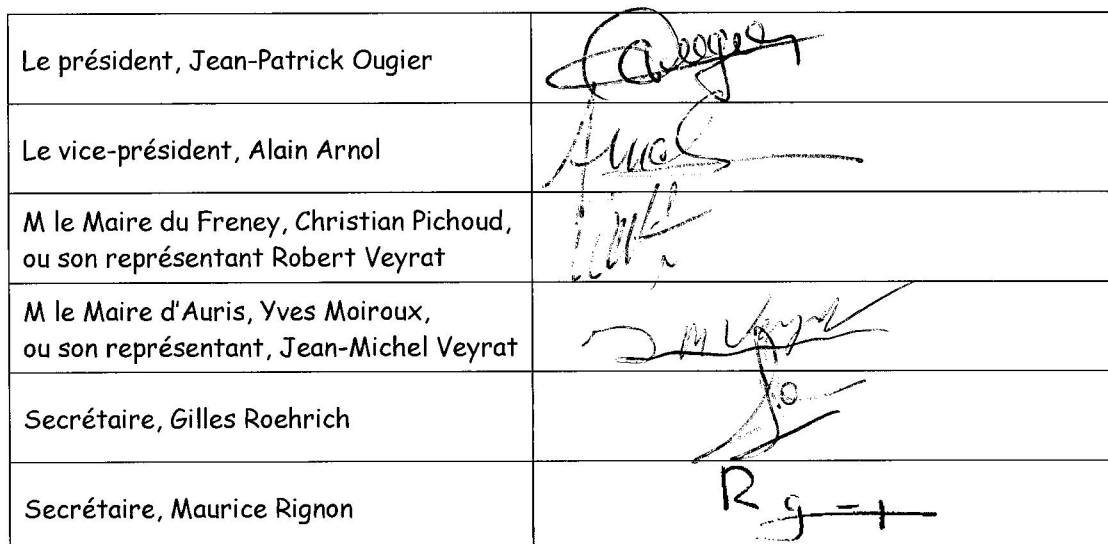 Le président, Jean-Patrick Ougier
Le vice-président, Alain Arnol
M le Maire du Freney, Christian Pichoud,
ou son représentant Robert Veyrat
M le Maire d'Auris, Yves Moiroux,
ou son représentant, Jean-Michel Veyrat
Secrétaire, Gilles Roehrich
Secrétaire, Maurice Rignon